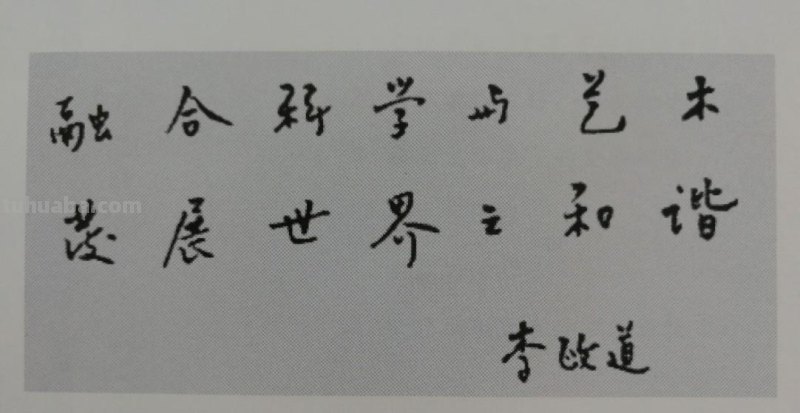 融合科学与艺术
发展世界之和谐
李政道
tuhuaba.com